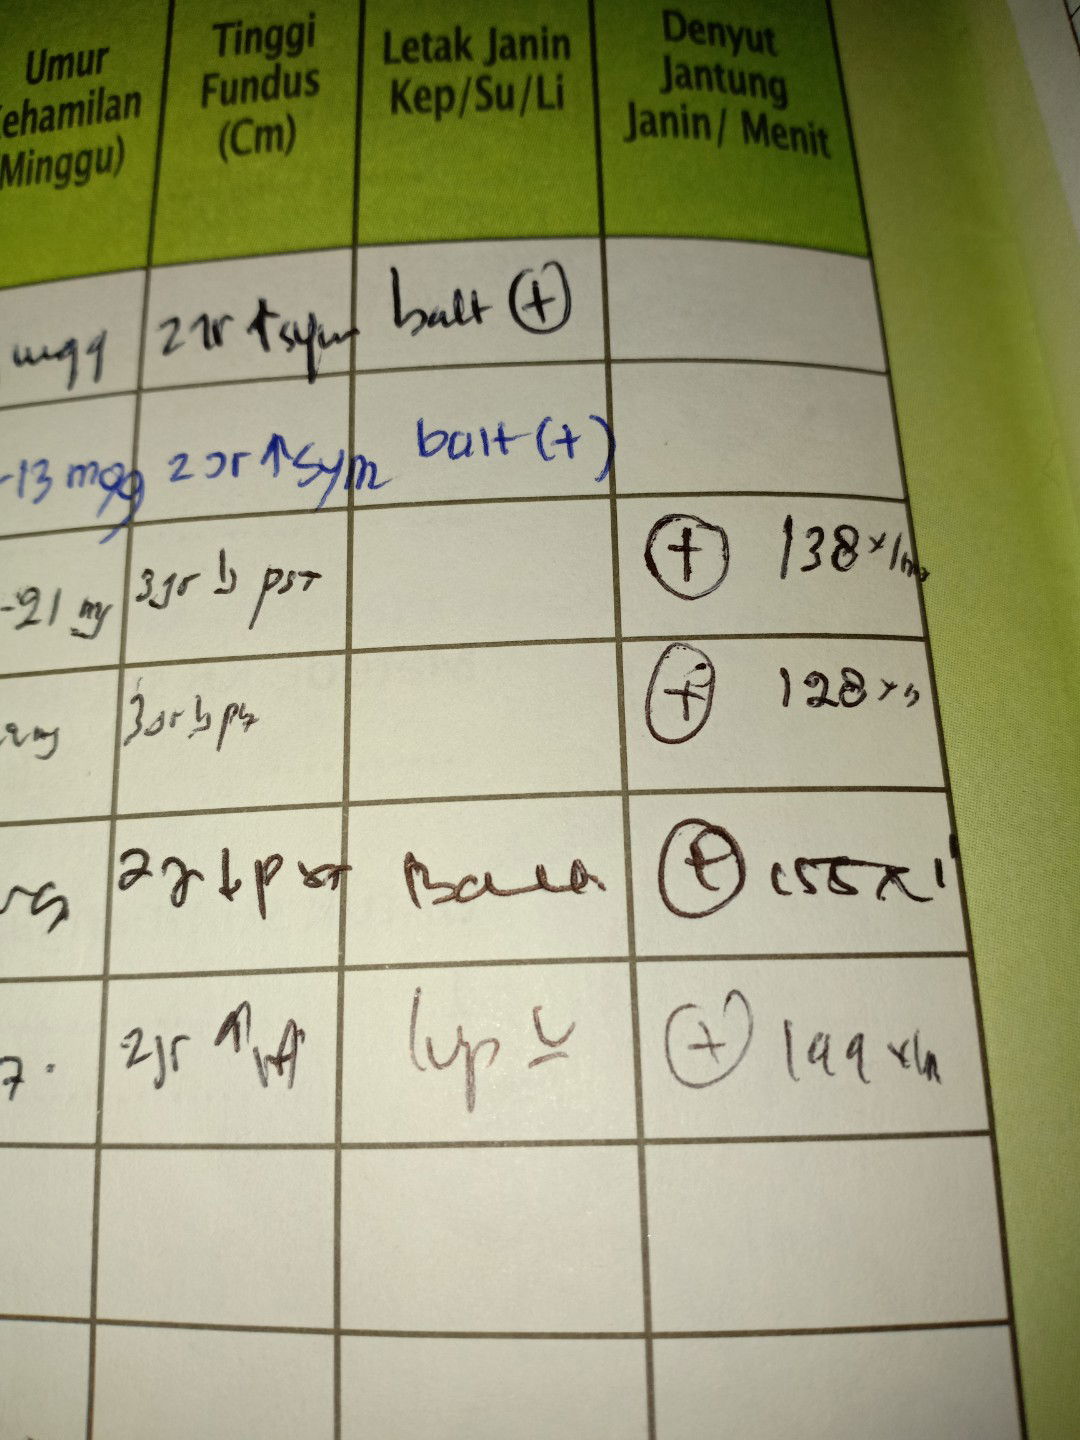 Umur
Kehamilan
(Minggu)
Tinggi
Fundus
(Cm)
Letak Janin
Kep/Su/Li
Denyut
Jantung
Janin/ Menit
mgg 2 Jr ↑ sym balt (+)
-13 mgg 2 Jr ↑ sym balt (+)
-21 mg 3 Jr b pst (+) 138 x/m
3 Jr b pst (+) 128 x
(+) 155 x 1'
2 Jr ↑ (+)